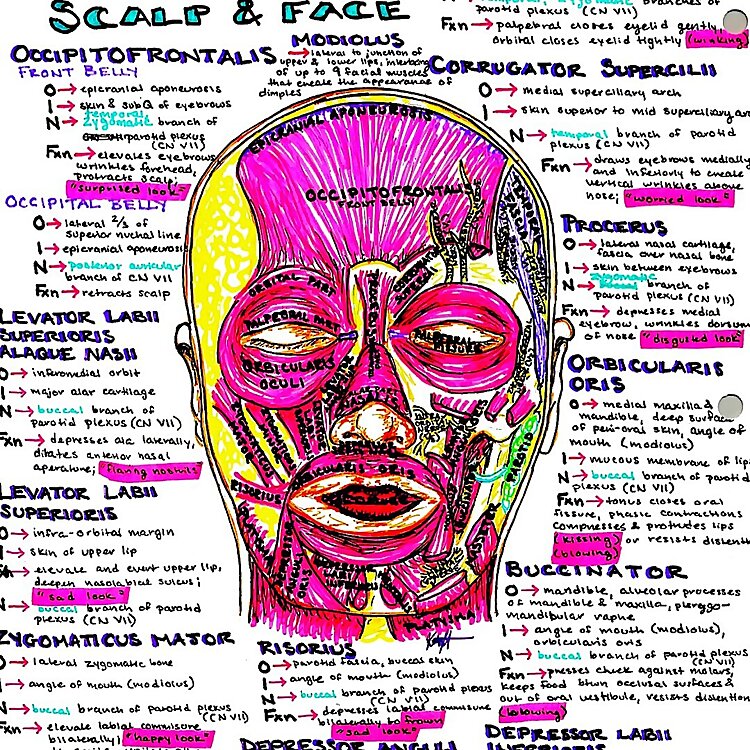 SCALP & FACE
OCCIPITOFRONTALIS
FRONT BELLY
O → epicranial aponeurosis
I → skin & subQ of eyebrows
temporal
N → zygomatic branch of
parotid plexus
(CN VII)
Fxn → elevates eyebrows,
wrinkles forehead,
protracts scalp;
"surprised look"
OCCIPITAL BELLY
O → lateral 2/3 of
superior nuchal line
I → epicranial aponeurosis
N → posterior auricular
branch of CN VII
Fxn → retracts scalp
LEVATOR LABII
SUPERIORIS
ALAQUE NASII
O → inferomedial orbit
I → major alar cartilage
N → buccal branch of
parotid plexus (CN VII)
Fxn → depresses ala laterally,
dilates anterior nasal
aperature; "flaring nostrils"
LEVATOR LABII
SUPERIORIS
O → infra-orbital margin
I → skin of upper lip
→ elevate and evert upper lip,
deepen nasolabial sulcus;
"sad look"
N → buccal branch of parotid
plexus (CN VII)
ZYGOMATICUS MAJOR
O → lateral zygomatic bone
I → angle of mouth (modiolus)
N → buccal branch of parotid plexus
(CN VII)
Fxn → elevate labial commisure
bilaterally; "happy look"
MODIOLUS
→ lateral to junction of
upper & lower lips, interlacing
of up to 9 facial muscles
that create the appearance of
dimples
EPICRANIAL APONEUROSIS
OCCIPITOFRONTALIS
FRONT BELLY
TEMPORAL
FASCIA
CORRUGATOR
SUPERCILII
PROCERUS
ORBITAL PART
PALPEBRAL PART
ORBICULARIS
OCULI
PALPEBRAL
NASALIS
PAROTID
RISORIUS
ORBICULARIS ORIS
BUCCINATOR
MASSETER
DEPRESSOR
ANGULI
ORIS
DEPRESSOR
LABII
INFERIORIS
MENTALIS
PLATYSMA
RISORIUS
O → parotid fascia, buccal skin
I → angle of mouth (modiolus)
N → buccal branch of parotid plexus
(CN VII)
Fxn → depresses labial commisure
bilaterally to frown
"sad look"
DEPRESSOR ANGULI
temporal, zygomatic branches of
parotid plexus (CN VII)
Fxn → palpebral closes eyelid gently,
orbital closes eyelid tightly (winking)
CORRUGATOR SUPERCILII
O → medial superciliary arch
I → skin superior to mid superciliary arch
N → temporal branch of parotid
plexus (CN VII)
Fxn → draws eyebrows medially
and inferiorly to create
vertical wrinkles above
nose; "worried look"
PROCERUS
O → lateral nasal cartilage,
fascia over nasal bone
I → skin between eyebrows
zygomatic
N → branch of
parotid plexus (CN VII)
Fxn → depresses medial
eyebrow, wrinkles dorsum
of nose "disgusted look"
ORBICULARIS
ORIS
O → medial maxilla &
mandible, deep surface
of peri-oral skin, angle of
mouth (modiolus)
I → mucous membrane of lips
N → buccal branch of parotid
plexus (CN VII)
Fxn → tonus closes oral
fissure, phasic contractions
compresses & protrudes lips
(kissing) or resists distention
(blowing)
BUCCINATOR
O → mandible, alveolar processes
of mandible & maxilla, pterygo-
mandibular raphe
I → angle of mouth (modiolus),
orbicularis oris
N → buccal branch of parotid plexus
(CN VII)
Fxn → presses cheek against molars,
keeps food btwn occlusal surfaces &
out of oral vestibule, resists distention
(blowing)
DEPRESSOR LABII
INFERIORIS